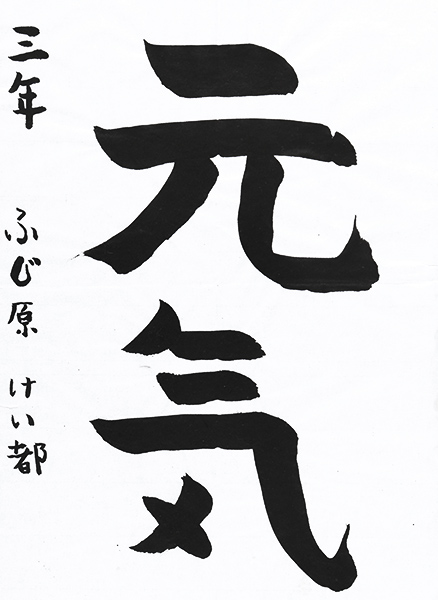 元気
三年 ふじ原 けい都